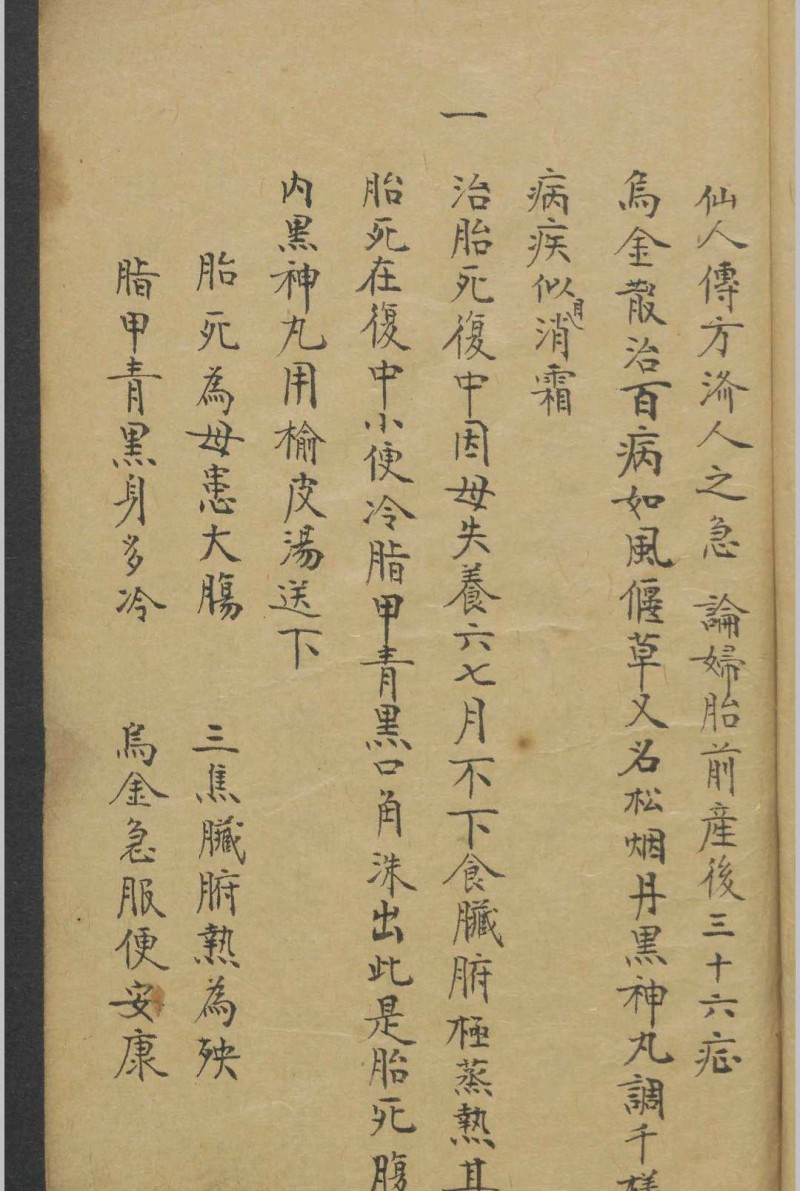 仙人傳方济人之急 論婦胎前產後三十六症
烏金散治百病如風偃草又名松烟丹黑神丸調千樣
病疾似消霜
一 治胎死復中因母失養六七月不下食臟腑極蒸熱其
胎死在復中小便冷脂甲青黑口角沫出此是胎死腹
内黑神丸用榆皮湯送下
胎死為母患大腸 三焦臟腑熱為殃
脂甲青黑身多冷 烏金急服便安康